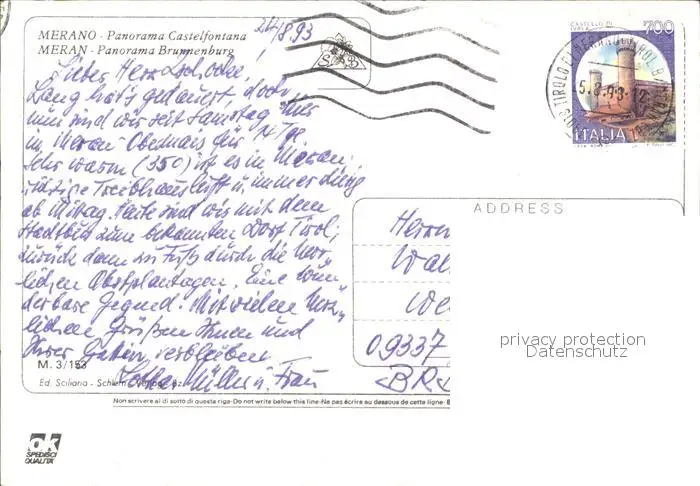 MERANO - Panorama Castelfontana
MERAN - Panorama Brunnenburg
24/8 93
S B
Lieber Herr Zschoche!
Lang hat's gedauert, doch
nun sind wir seit Samstag
in Meran-Obermais für 14 Tge.
Sehr warm (35°) ist es in Meran;
Treibhausluft u. immer
ab Mittag. Heute sind wir mit dem
Stadtbus zum bekannten Dorf Tirol;
zurück dann zu Fuß durch die herr-
lichen Obstplantagen. Eine wun-
derbare Gegend. Mit vielen herz-
lichen Grüßen Ihnen und
Ihrer Gattin, verbleiben
Lothar Müller u. Frau
M. 3/153
Ed. Sciliaria - Schlern
Non scrivere al di sotto di questa riga-Do not write below this line-Ne pas écrire au dessous de cette ligne-
CASTELLO DI
IVREA
700
ITALIA
5.8.93-12
ADDRESS
Herrn
Wal
We
09337
<BRD
privacy protection
Datenschutz
ok
SPEDISCI
QUALITA'